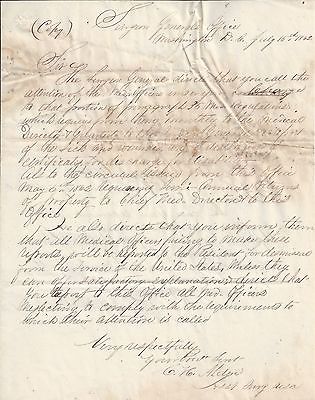 (Copy)
Surgeon General's Office
Washington D. C. July 15th 1862
Sir
The Surgeon General directs that you call the
attention of the Medical Officers under your
to that portion of paragraph of the Regulations
which requires them monthly to the Medical
Director & Quarterly to the Surgeon General reports
of the sick and wounded and of
certificates for discharge
And to the circular issued from this Office
May 1862 requiring Semi-Annual Returns
of property to Chief Med Directors & to this
Office
He also directs that you inform them
that all Medical Officers failing to make these
reports, will be reported to the President for dismissal
from the service of the United States, Unless they
can offer satisfactory explanations; directs that
you report to this Office all Officers
neglecting to comply with the requirements to
which their attention is called
Very respectfully
Your Obt Servt
Asst Surg USA